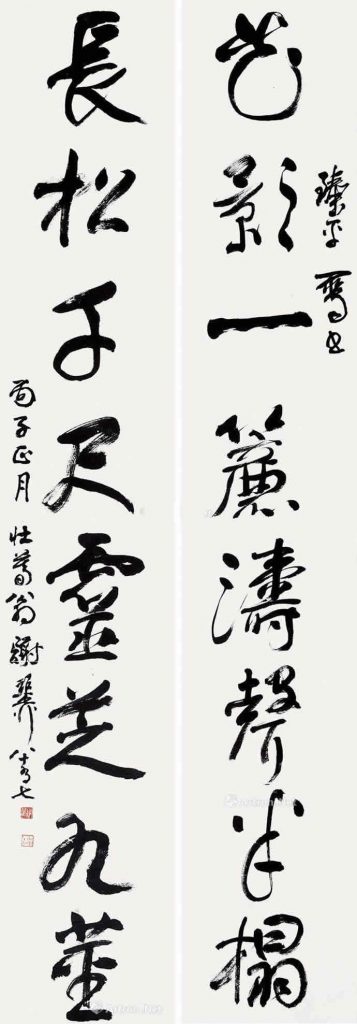 花影一簾濤聲半榻
屬書
長松千尺靈芝九莖
丙子正月 壯暮翁謝稚柳 八十有七